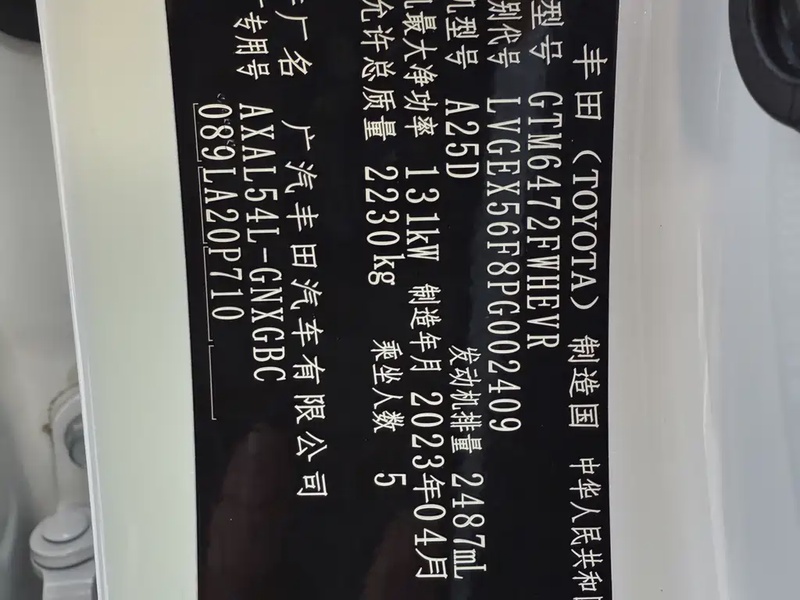 丰田 (TOYOTA) 制造国 中华人民共和
型号 GTM6472FWHEVR
别代号 LVGEX56F8PG002409
机型号 A25D 发动机排量 2487mL
最大净功率 131kW 制造年月 2023年04月
允许总质量 2230kg 乘坐人数 5
厂名 广汽丰田汽车有限公司
专用号 AXAL54L-GNXGBC
089LA20P710